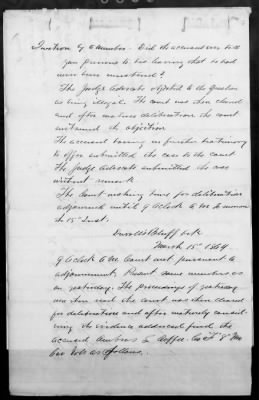 Question by a member. Did the accused ever tell
you previous to his leaving that he had
ever been mustered?
The Judge Advocate objected to the question
as being illegal. The court was then closed
and after mature deliberation the court
sustained the objection
The accused having no further testimony
to offer submitted the case to the court
The Judge Advocate submitted the case
without remark
The Court wishing time for deliberation
adjourned until 9 oclock to morrow
the 15" Inst.
Duvalls Bluff Ark
March 15" 1864
9 oclock the Court met pursuant to
adjournment. Present same members as
on yesterday. The proceedings of yesterday
was then read the court was then cleared
for deliberation and after maturely consid-
ering the evidence adduced find the
accused
Cav Vols as follows.